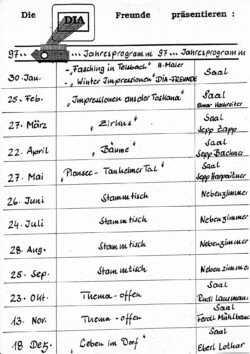 Die DIA Freunde präsentieren :
97.... Jahresprogramm 97... Jahresprogramm
30. Jan. - „Fasching in Teisbach" H. Maier Saal
- „Winter Impressionen" DIA-FREUNDE
25. Feb. „Impressionen aus der Toskana" Saal
27. März „Zirkus" Saal
Sepp Zapp
22. April „Bäume" Saal
Sepp Bachner
27. Mai „Plansee - Tanheimer Tal" Saal
Sepp
26. Juni Stammtisch Nebenzimmer
24. Juli Stammtisch Nebenzimmer
28. Aug. Stammtisch Nebenzimmer
25. Sep. Stammtisch Nebenzimmer
23. Okt. Thema - offen Saal
Rudi
13. Nov. Thema - offen Saal
Ferdl Mühlbauer
18 Dez. „Leben im Dorf" Saal
Eberl Lothar